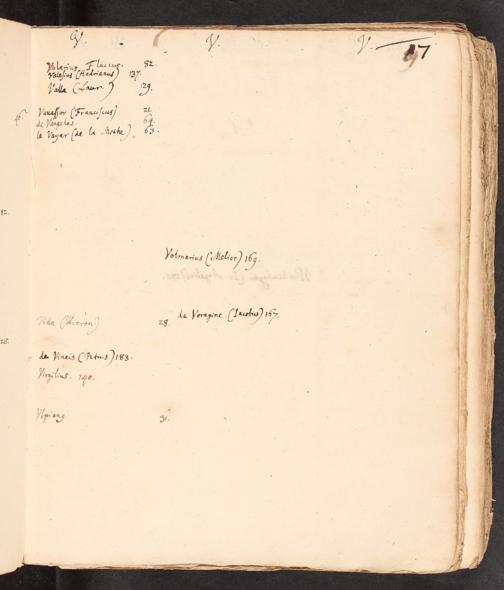 V. V. V. 17
Valerius Flaccus. 82.
Valesius (Hadrianus) 137.
Valla (Laur.) 129.
Vavassor (Franciscus) 21.
de Vaugelas 64.
le Vayer (de la Mothe). 63.
Volmarius (Melior) 169.
Vida (Hieron) 28.
de Voragine (Iacobus) 157.
de Vineis (Petrus) 183.
Virgilius. 190.
Vlpiang 31.